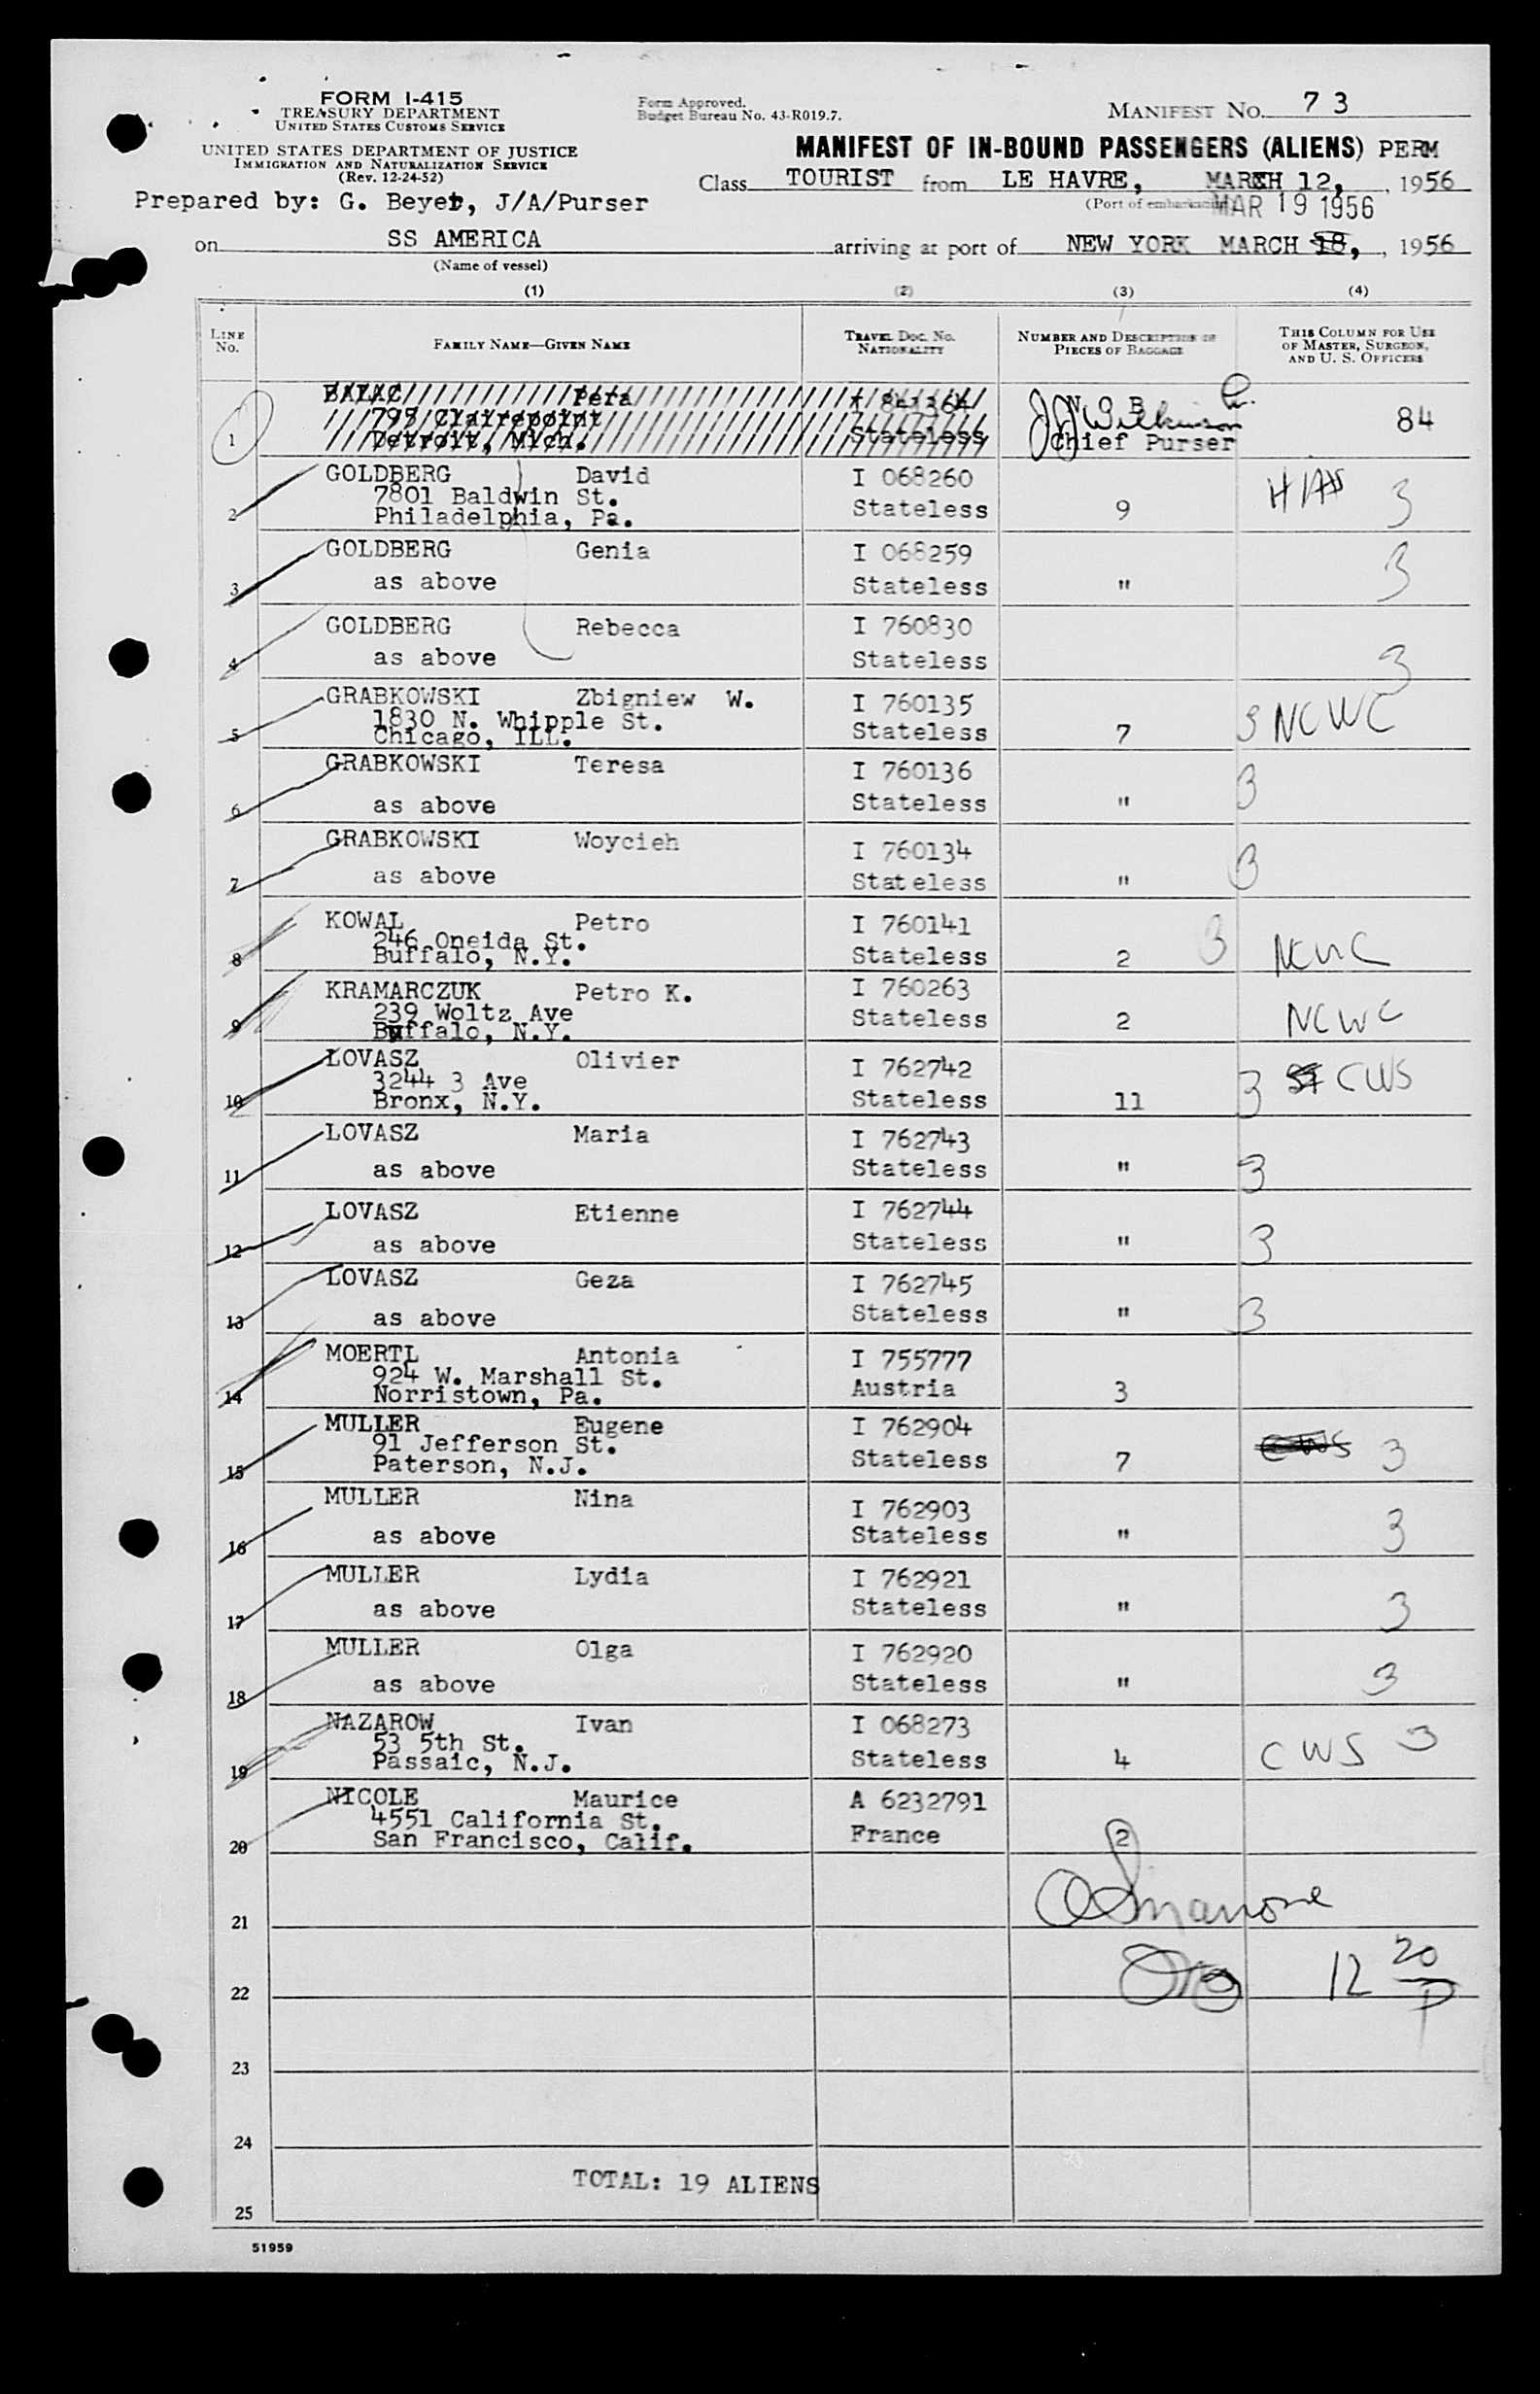 FORM I-415
TREASURY DEPARTMENT
UNITED STATES CUSTOMS SERVICE
UNITED STATES DEPARTMENT OF JUSTICE
IMMIGRATION AND NATURALIZATION SERVICE
(Rev. 12-24-52)
Form Approved.
Budget Bureau No. 43-R019.7.
MANIFEST No. 73
MANIFEST OF IN-BOUND PASSENGERS (ALIENS) PERM
Class TOURIST from LE HAVRE, MARCH 12, 1956
Prepared by: G. Beyer, J/A/Purser
(Port of embarkation)
MAR 19 1956
on SS AMERICA arriving at port of NEW YORK MARCH 18, , 1956
(Name of vessel)
(1) (2) (3) (4)
LINE No. FAMILY NAME—GIVEN NAME TRAVEL DOC. NO. NATIONALITY NUMBER AND DESCRIPTION OF PIECES OF BAGGAGE THIS COLUMN FOR USE OF MASTER, SURGEON, AND U. S. OFFICERS
BALAC Pera N O B
795 Clairepoint JJ Wilkinson 84
1 Detroit, Mich. Stateless Chief Purser
GOLDBERG David I 068260 HIAS 3
7801 Baldwin St.
2 Philadelphia, Pa. Stateless 9
GOLDBERG Genia I 068259 3
3 as above Stateless "
GOLDBERG Rebecca I 760830
4 as above Stateless 3
GRABKOWSKI Zbigniew W. I 760135
1830 N. Whipple St. 3 NCWC
5 Chicago, ILL. Stateless 7
GRABKOWSKI Teresa I 760136 3
6 as above Stateless "
GRABKOWSKI Woycieh I 760134 3
7 as above Stateless "
KOWAL Petro I 760141 3
246 Oneida St. NCWC
8 Buffalo, N.Y. Stateless 2
KRAMARCZUK Petro K. I 760263
239 Woltz Ave NCWC
9 Buffalo, N.Y. Stateless 2
LOVASZ Olivier I 762742
3244 3 Ave 3 CWS
10 Bronx, N.Y. Stateless 11
LOVASZ Maria I 762743
11 as above Stateless " 3
LOVASZ Etienne I 762744
12 as above Stateless " 3
LOVASZ Geza I 762745
13 as above Stateless " 3
MOERTL Antonia I 755777
924 W. Marshall St.
14 Norristown, Pa. Austria 3
MULLER Eugene I 762904
91 Jefferson St. CWS 3
15 Paterson, N.J. Stateless 7
MULLER Nina I 762903
16 as above Stateless " 3
MULLER Lydia I 762921
17 as above Stateless " 3
MULLER Olga I 762920
18 as above Stateless " 3
NAZAROW Ivan I 068273
53 5th St. CWS 3
19 Passaic, N.J. Stateless 4
NICOLE Maurice A 6232791
4551 California St.
20 San Francisco, Calif. France 2
21
22 12 20 P
23
24
TOTAL: 19 ALIENS
25
51959